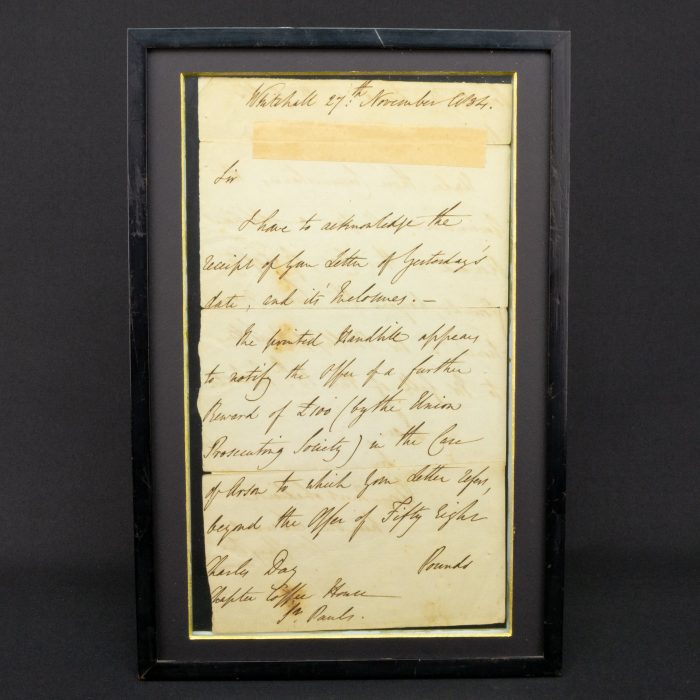 Whitehall 27th November 1834.
Sir
I have to acknowledge the
receipt of Your Letter of Yesterday's
date, and its' Enclosures. —
The printed Handbill appears
to notify the Offer of a further
Reward of £100 (by the Union
Prosecuting Society) in the Case
of Arson to which Your Letter refers,
beyond the Offer of Fifty Eight
Pounds
Charles Day
Chapter Coffee House
St. Pauls.